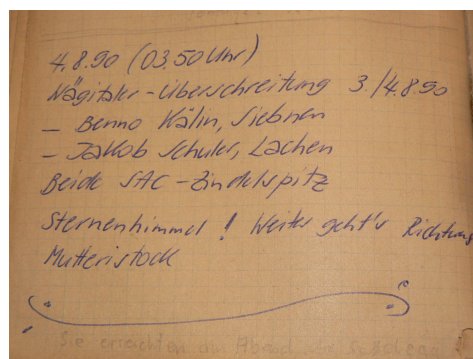 4.8.90 (03.50 Uhr)
Wägitaler-Überschreitung 3./4.8.90
– Benno Kälin, Siebnen
– Jakob Schuler, Lachen
Beide SAC-Zindelspitz
Sternenhimmel! Weiter geht's Richtung
Mutteristock
Sie erreichten am Abend